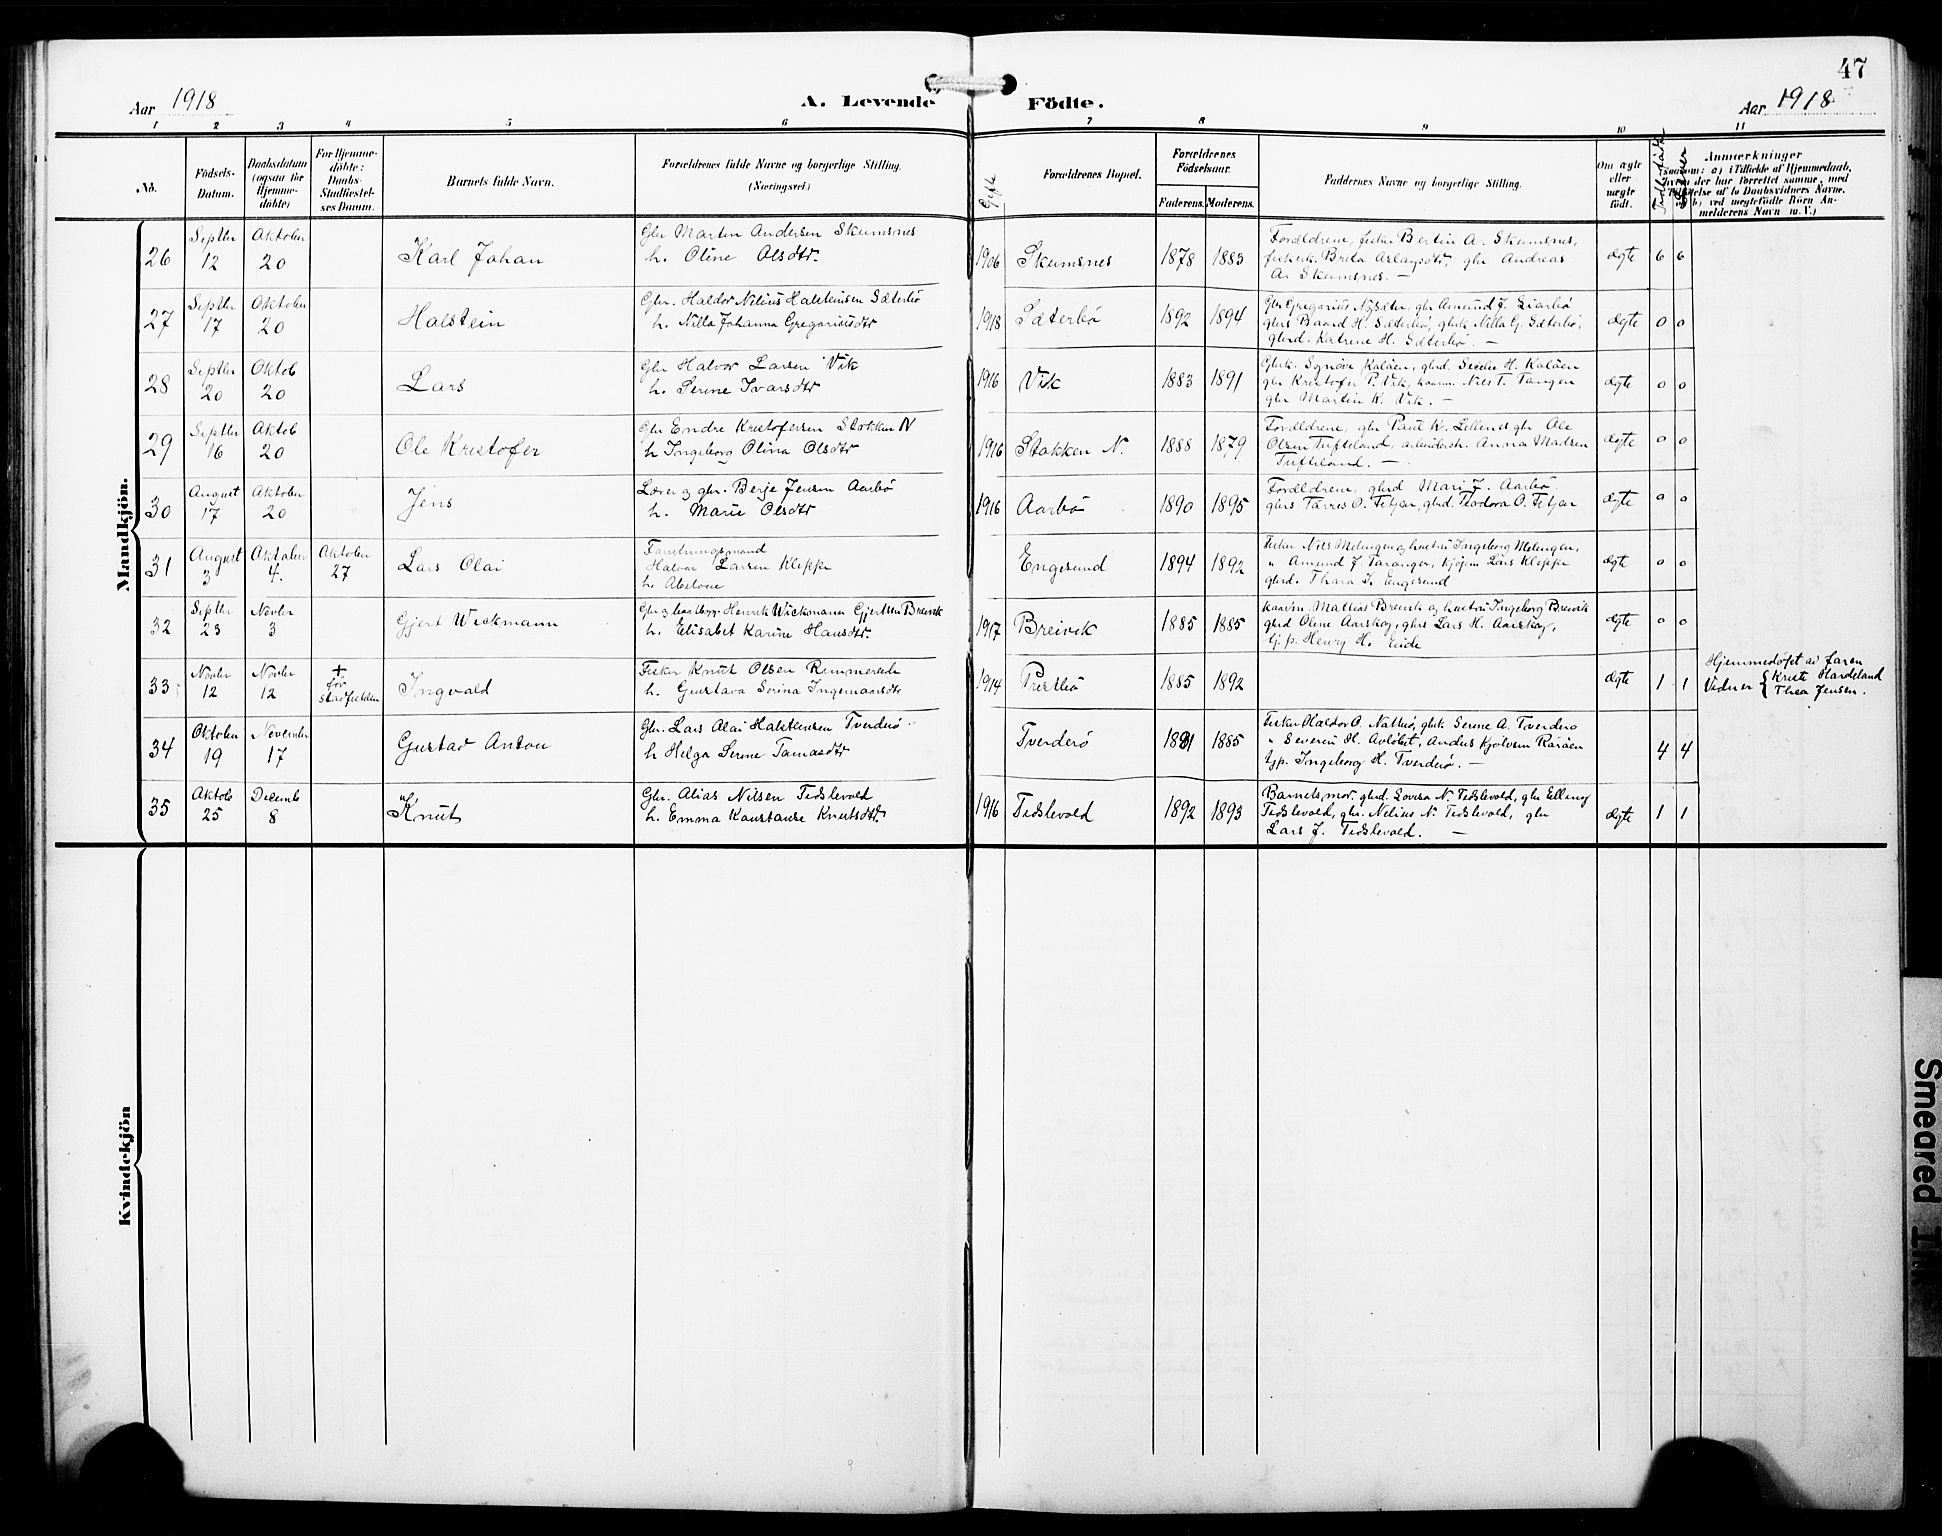 47
Aar 1918
A. Levende Födte.
Aar 1918
1 2 3 4 5 6 7 8 9 10 11
No.
Födsels-
Datum.
Daabsdatum
(ogsaa for
Hjemme-
döbte)
For Hjemme-
döbte:
Daabs-
Stadfæstel-
ses Datum.
Barnets fulde Navn.
Forældrenes fulde Navne og borgerlige Stilling.
(Næringsvei.)
Gifte
Forældrenes Bopæl.
Forældrenes
Födselsaar.
Faderens. Moderens.
Faddernes Navne og borgerlige Stilling.
Om ægte
eller
uægte
födt.
Anmærkninger
(saasom: a) i Tilfælde af Hjemmedaab,
hvem der har forrettet samme, med
b) ved uægtefödte Börn An-
melderens Navn m. V.)
Mandkjön.
26
Septbr
12
Oktober
20
Karl Johan
Gbr Martin Andersen Skumsnes
h. Oline Olsdtr.
1906
Skumsnes
1878 1883
Foreldrene, fisker Bertin A. Skumsnes,
fiskerk. Breta Aslagsdtr, gbr Andreas
A. Skumsnes. —
ægte 6 6
27
Septbr
17
Oktober
20
Halstein
Gbr. Haldor Nilius Halsteinsen Sæterbø
h. Nilla Johanna Gregoriusdtr
1918
Sæterbø
1892 1894
Gbr Gregorius Nysæter, gbr Amund J. Liarbø
gbrs Baard H. Sæterbø, gbrk Nilla G. Sæterbø,
gbrd. Katrine H. Sæterbø. —
ægte 0 0
28
Septbr
20
Oktob
20
Lars
Gbr Halvor Larsen Vik
h. Serine Ivarsdtr
1916
Vik
1883 1891
Gbrk. Synøve Kaløen, gbrd. H. Kaløen
gbr Kristofer P. Vik, kaarm Nils T. Tangen
gbr Martin K. Vik. —
ægte 0 0
29
Septbr
16
Oktob
20
Ole Kristofer
Gbr Endre Kristofersen Stokken N
h Ingeborg Olina Olsdtr
1916
Stokken N.
1888 1879
Foreldrene, gbr Paul K. gbr Ole
Olsen Tufteland, arbeidersk. Anna Madsen
Tufteland. —
ægte 0 0
30
August
17
Oktober
20
Jens
Lærer og gbr. Berje Jensen Aarbø
h. Marie Olsdtr
1916
Aarbø
1890 1895
Foreldrene, gbrd Mari J. Aarbø
gbrs Tarres O. Fitjar, gbrd. Teodora O. Fitjar
ægte 0 0
31
August
3
Oktober
4.
Oktober
27
Lars Olai
Halvor Larsen Kleppe
h. Abelone
Engesund
1894 1892
Fisker Nils Melingen og hustru Ingeborg Melingen,
" Amund J. Taranger, Lars Kleppe
gbrd. Thora J. Engesund
ægte 0 0
32
Septbr
23
Novbr
3
Gjert Wickmann
Gbr og Henrik Wickmann Gjertsen Breivik
h. Elisabet Karine Hansdtr.
1917
Breivik
1885 1885
kaarm. Mattias Breivik og hustru Ingeborg Breivik
gbrd Oline Aarskog, gbrs Lars H. Aarskog,
tj.p. Henry H. Eide
ægte 0 0
33
Novbr
12
Novbr
12
+
før
Ingvald
Fisker Knut Olsen Rimmereide
h. Gustava Serina Ingemansdtr
1914
Prestbø
1885 1892
ægte 1 1
Hjemmedøpt av faren
Vidner { Krist Hardeland
Thea Jensen.
34
Oktober
19
November
17
Gustav Anton
Gbr. Lars Olai Halsteinsen Tverderø
h Helga Serine Tomasdtr
Tverderø
1881 1885
Fisker Haldor O. Nattøs, gbrk Serine A. Tverderø
" Severin H. Avløbet, Anders Kjølvsen Rørøen
tjp. Ingeborg H. Tverderø. —
4 4
35
Oktob
25
Decemb
8
Knut
Gbr. Alias Nilsen Tidslevold
h. Emma Konstanse Knutsdtr.
1916
Tidslevold
1892 1893
Barnets mor. gbrd. Lovisa N. Tidslevold, gbr Elling
Tidslevold, gbr. Nilius N. Tidslevold, gbr
Lars J. Tidslevold. —
ægte 1 1
Kvindekjön
Smeared Ink